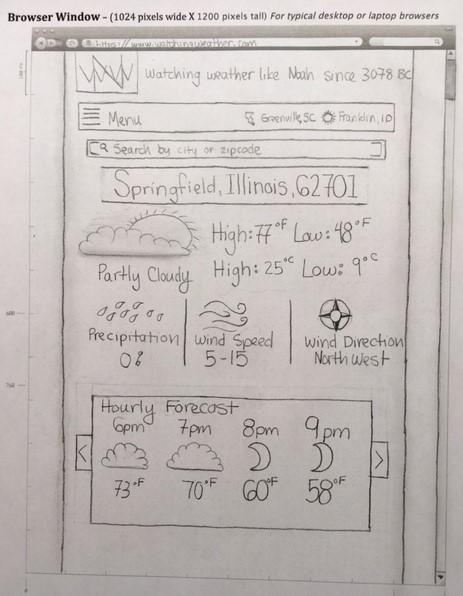 Browser Window – (1024 pixels wide X 1200 pixels tall) For typical desktop or laptop browsers
https://www.watchingweather.com
WW Watching weather like Noah since 3078 BC
Menu Greenville, SC Franklin, ID
Search by city or zipcode
Springfield, Illinois, 62701
High: 77°F Low: 48°F
High: 25°C Low: 9°C
Partly Cloudy
Precipitation Wind Speed Wind Direction
0% 5-15 North West
600
768
Hourly Forecast
6pm 7pm 8pm 9pm
< >
73°F 70°F 60°F 58°F